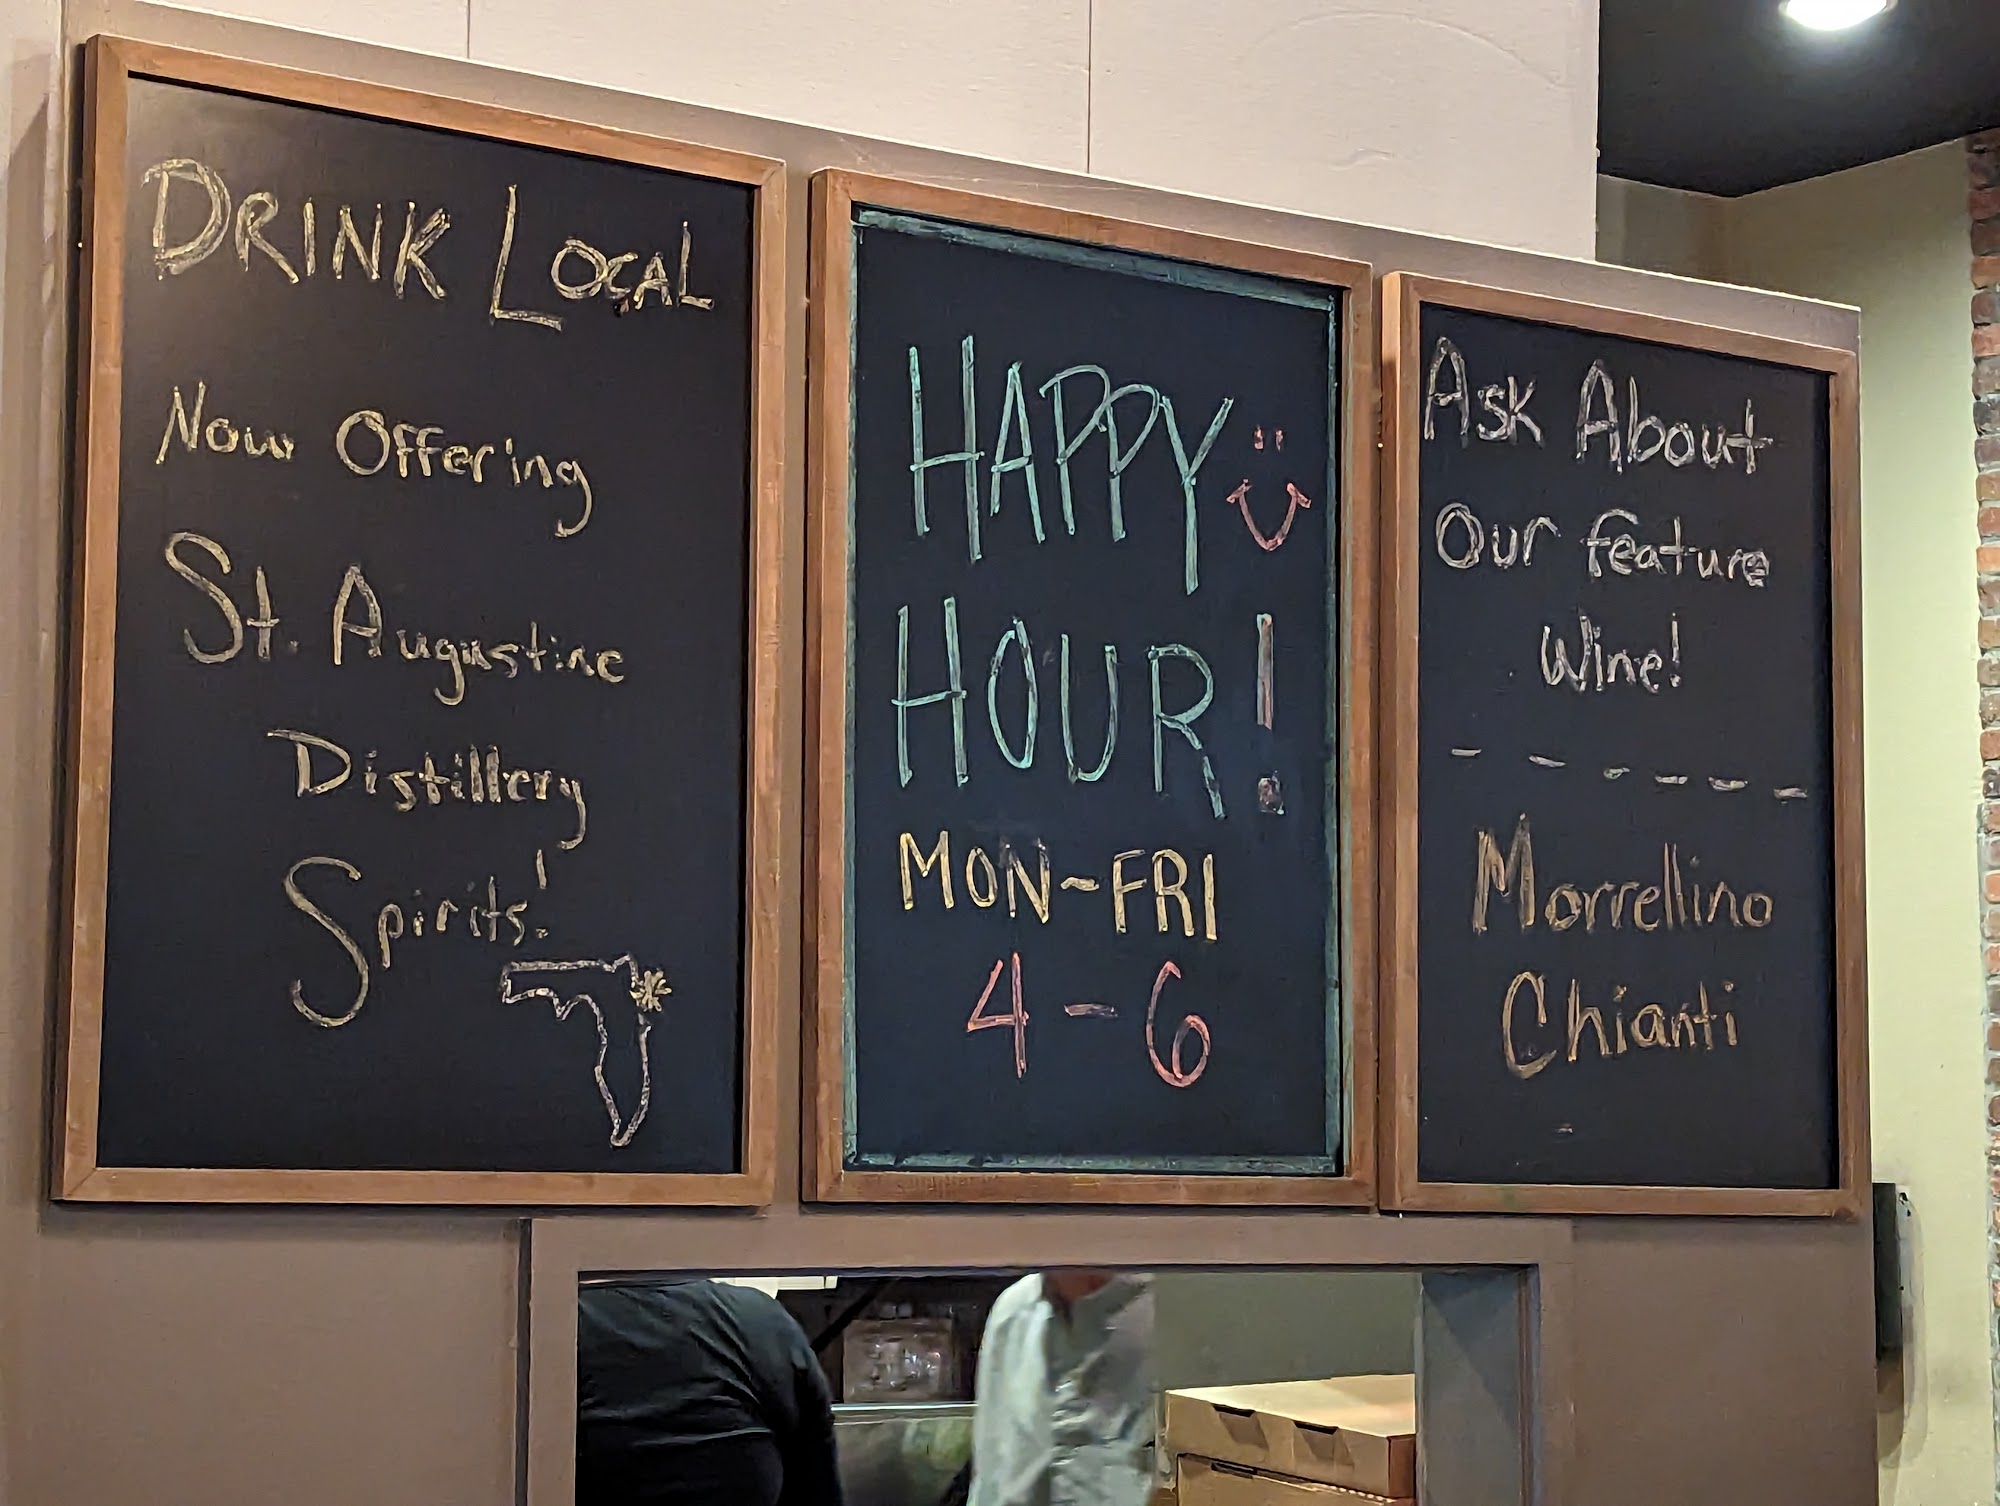 DRINK LOCAL
Now Offering
St. Augustine
Distillery
Spirits!
HAPPY
HOUR!
MON~FRI
4-6
Ask About
Our feature
Wine!
------
Morrellino
Chianti